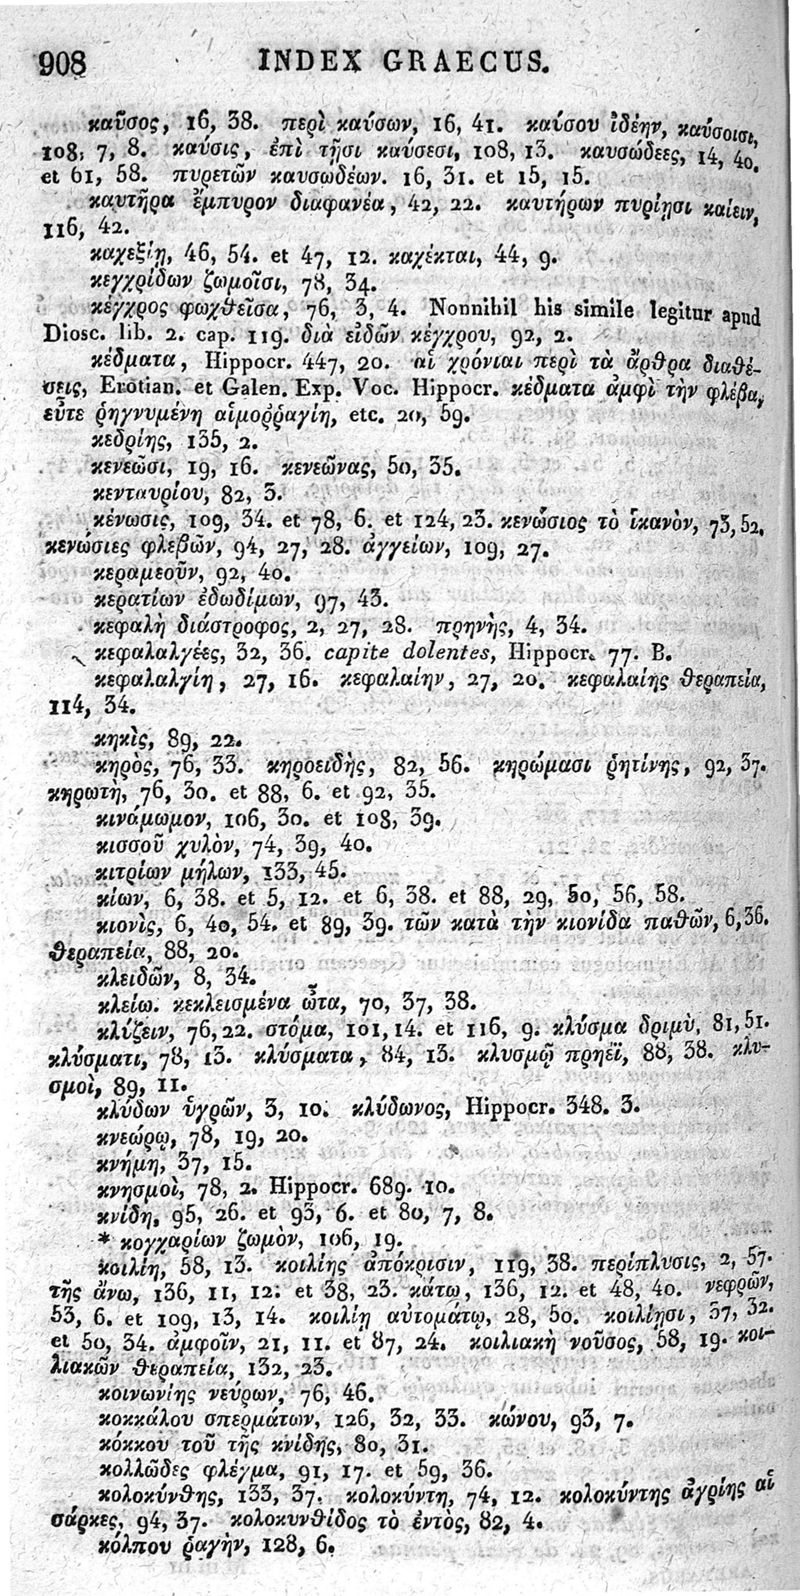 908 INDEX GRAECUS.
καῦσος, 16, 38. περὶ καύσων, 16, 41. καύσου ἰδέην, καύσοισι,
108, 7, 8. καύσις, ἐπὶ τῇσι καύσεσι, 108, 13. καυσώδεες, 14, 40.
et 61, 58. πυρετῶν καυσωδέων. 16, 31. et 15, 15.
καυτῆρα ἔμπυρον διαφανέα, 42, 22. καυτήρων πυρίῃσι καίειν,
116, 42.
καχεξίη, 46, 54. et 47, 12. καχέκται, 44, 9.
κεγχρίδων ζωμοῖσι, 78, 34.
κέγχρος φωχθεῖσα, 76, 3, 4. Nonnihil his simile legitur apud
Diosc. lib. 2. cap. 119. διὰ εἰδῶν κέγχρου, 92, 2.
κέδματα, Hippocr. 447, 20. αἱ χρόνιαι περὶ τὰ ἄρθρα διαθέ-
σεις, Erotian. et Galen. Exp. Voc. Hippocr. κέδματα ἀμφὶ τὴν φλέβα,
εὖτε ῥηγνυμένη αἱμορῥαγίη, etc. 20, 59.
κεδρίης, 135, 2.
κενεῶσι, 19, 16. κενεῶνας, 50, 35.
κενταυρίου, 82, 3.
κένωσις, 109, 34. et 78, 6. et 124, 23. κενώσιος τὸ ἱκανὸν, 73, 52.
κενώσιες φλεβῶν, 94, 27, 28. ἀγγείων, 109, 27.
κεραμεοῦν, 92, 40.
κερατίων ἐδωδίμων, 97, 43.
κεφαλὴ διάστροφος, 2, 27, 28. πρηνὴς, 4, 34.
κεφαλαλγέες, 32, 36. capite dolentes, Hippocr. 77. B.
κεφαλαλγίη, 27, 16. κεφαλαίην, 27, 20. κεφαλαίης θεραπεία,
114, 34.
κηκὶς, 89, 22.
κηρὸς, 76, 33. κηροειδὴς, 82, 56. κηρώμασι ῥητίνης, 92, 37.
κηρωτὴ, 76, 30. et 88, 6. et 92, 35.
κινάμωμον, 106, 30. et 108, 39.
κισσοῦ χυλὸν, 74, 39, 40.
κιτρίων μήλων, 133, 45.
κίων, 6, 38. et 5, 12. et 6, 38. et 88, 29, 50, 56, 58.
κιονὶς, 6, 40, 54. et 89, 39. τῶν κατὰ τὴν κιονίδα παθῶν, 6, 36.
θεραπεία, 88, 20.
κλειδῶν, 8, 34.
κλείω. κεκλεισμένα ὦτα, 70, 37, 38.
κλύζειν, 76, 22. στόμα, 101, 14. et 116, 9. κλύσμα δριμὺ, 81, 51.
κλύσματι, 78, 13. κλύσματα, 84, 13. κλυσμῷ πρηέϊ, 88, 38. κλυ-
σμοὶ, 89, 11.
κλύδων ὑγρῶν, 3, 10. κλύδωνος, Hippocr. 348. 3.
κνεώρῳ, 78, 19, 20.
κνήμη, 37, 15.
κνησμοὶ, 78, 2. Hippocr. 689. 10.
κνίδη, 95, 26. et 93, 6. et 80, 7, 8.
* κογχαρίων ζωμὸν, 106, 19.
κοιλίη, 58, 13. κοιλίης ἀπόκρισιν, 119, 38. περίπλυσις, 2, 57.
τῆς ἄνω, 136, 11, 12. et 38, 23. κάτω, 136, 12. et 48, 40. νεφρῶν,
53, 6. et 109, 13, 14. κοιλίῃ αὐτομάτῳ, 28, 50. κοιλίῃσι, 37, 32.
et 50, 34. ἀμφοῖν, 21, 11. et 87, 24. κοιλιακὴ νοῦσος, 58, 19. κοι-
λιακῶν θεραπεία, 132, 23.
κοινωνίης νεύρων, 76, 46.
κοκκάλου σπερμάτων, 126, 32, 33. κώνου, 93, 7.
κόκκου τοῦ τῆς κνίδης, 80, 31.
κολλῶδες φλέγμα, 91, 17. et 59, 36.
κολοκύνθης, 133, 37. κολοκύντη, 74, 12. κολοκύντης ἀγρίης αἱ
σάρκες, 94, 37. κολοκυνθίδος τὸ ἐντὸς, 82, 4.
κόλπου ῥαγὴν, 128, 6.